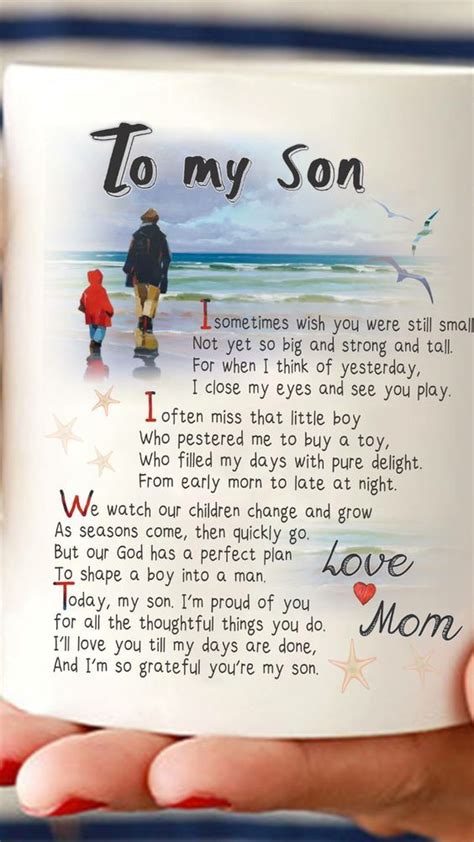 To my Son
I sometimes wish you were still small
Not yet so big and strong and tall.
For when I think of yesterday,
I close my eyes and see you play.
I often miss that little boy
Who pestered me to buy a toy,
Who filled my days with pure delight.
From early morn to late at night.
We watch our children change and grow
As seasons come, then quickly go.
But our God has a perfect plan
To shape a boy into a man.
Today, my son. I'm proud of you
for all the thoughtful things you do.
I'll love you till my days are done,
And I'm so grateful you're my son.
Love
Mom